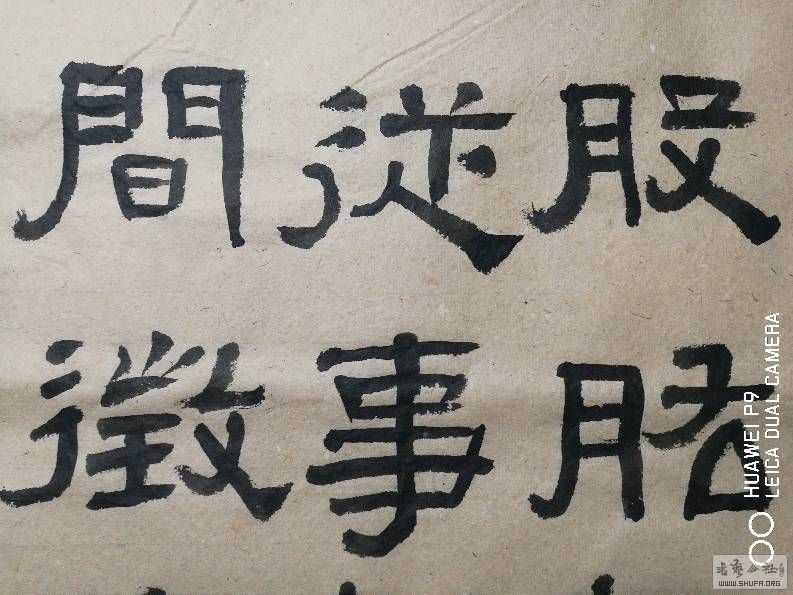 股肱
從事
間徵
HUAWEI P9
LEICA DUAL CAMERA
書藝公社
WWW.SHUFA.ORG